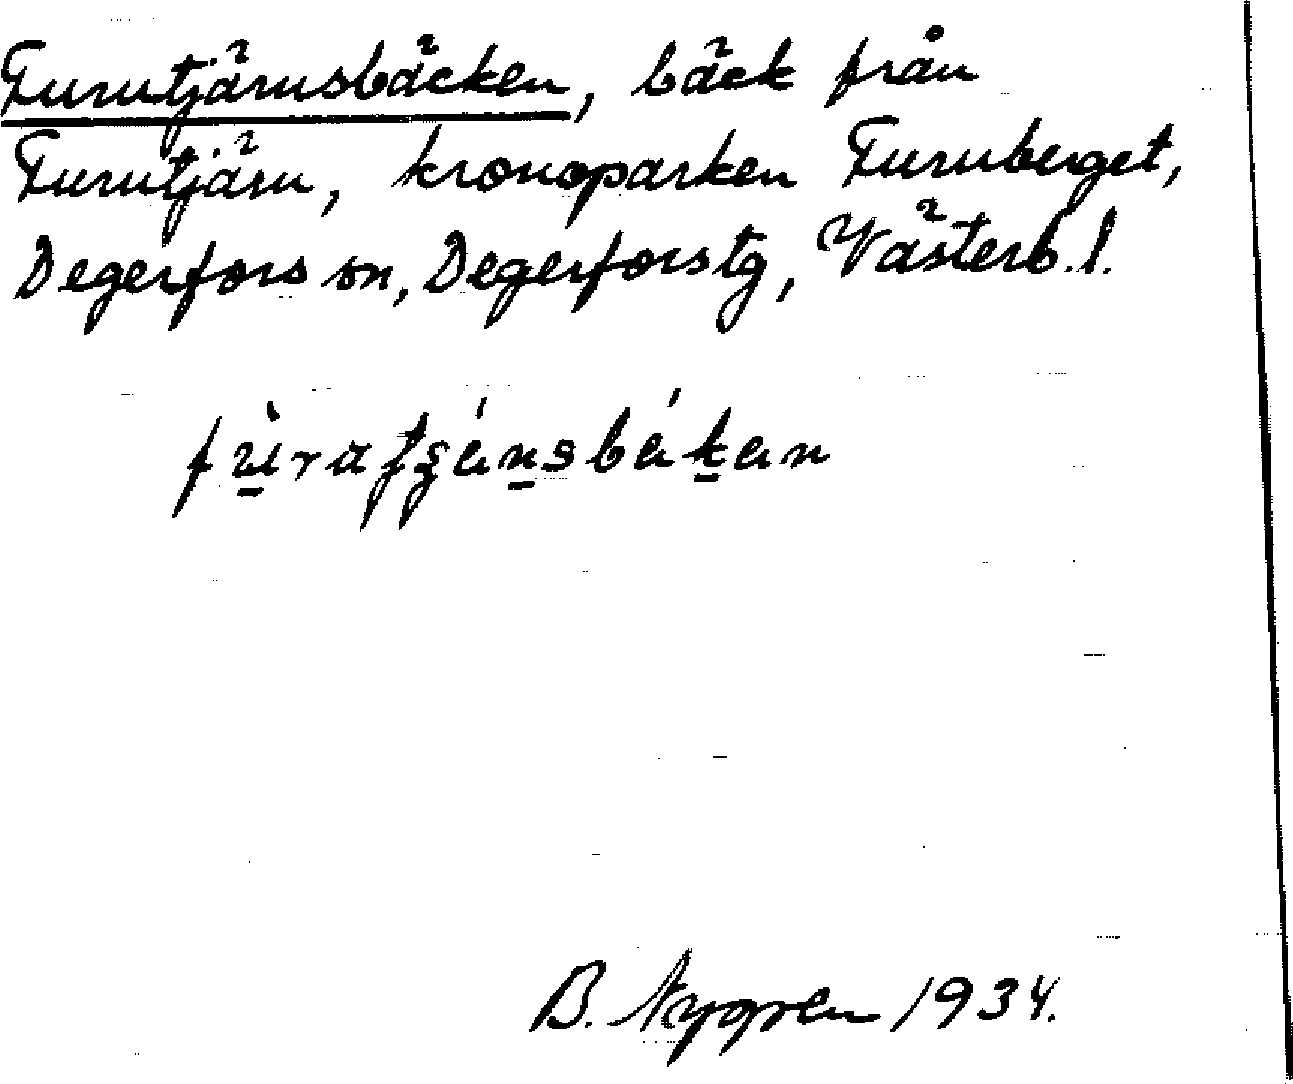 Furutjärnsbäcken, bäck från
Furutjärn, kronoparken Furuberget,
Degerfors sn, Degerfors tg, Västerb. l.
B. Nygren 1934.